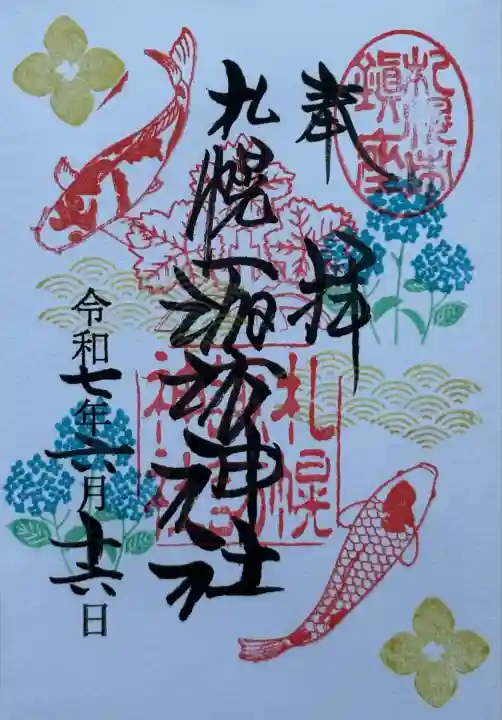 奉拝
札幌市
鎮座
札幌諏訪神社
札幌
諏訪
神社
令和七年六月十六日